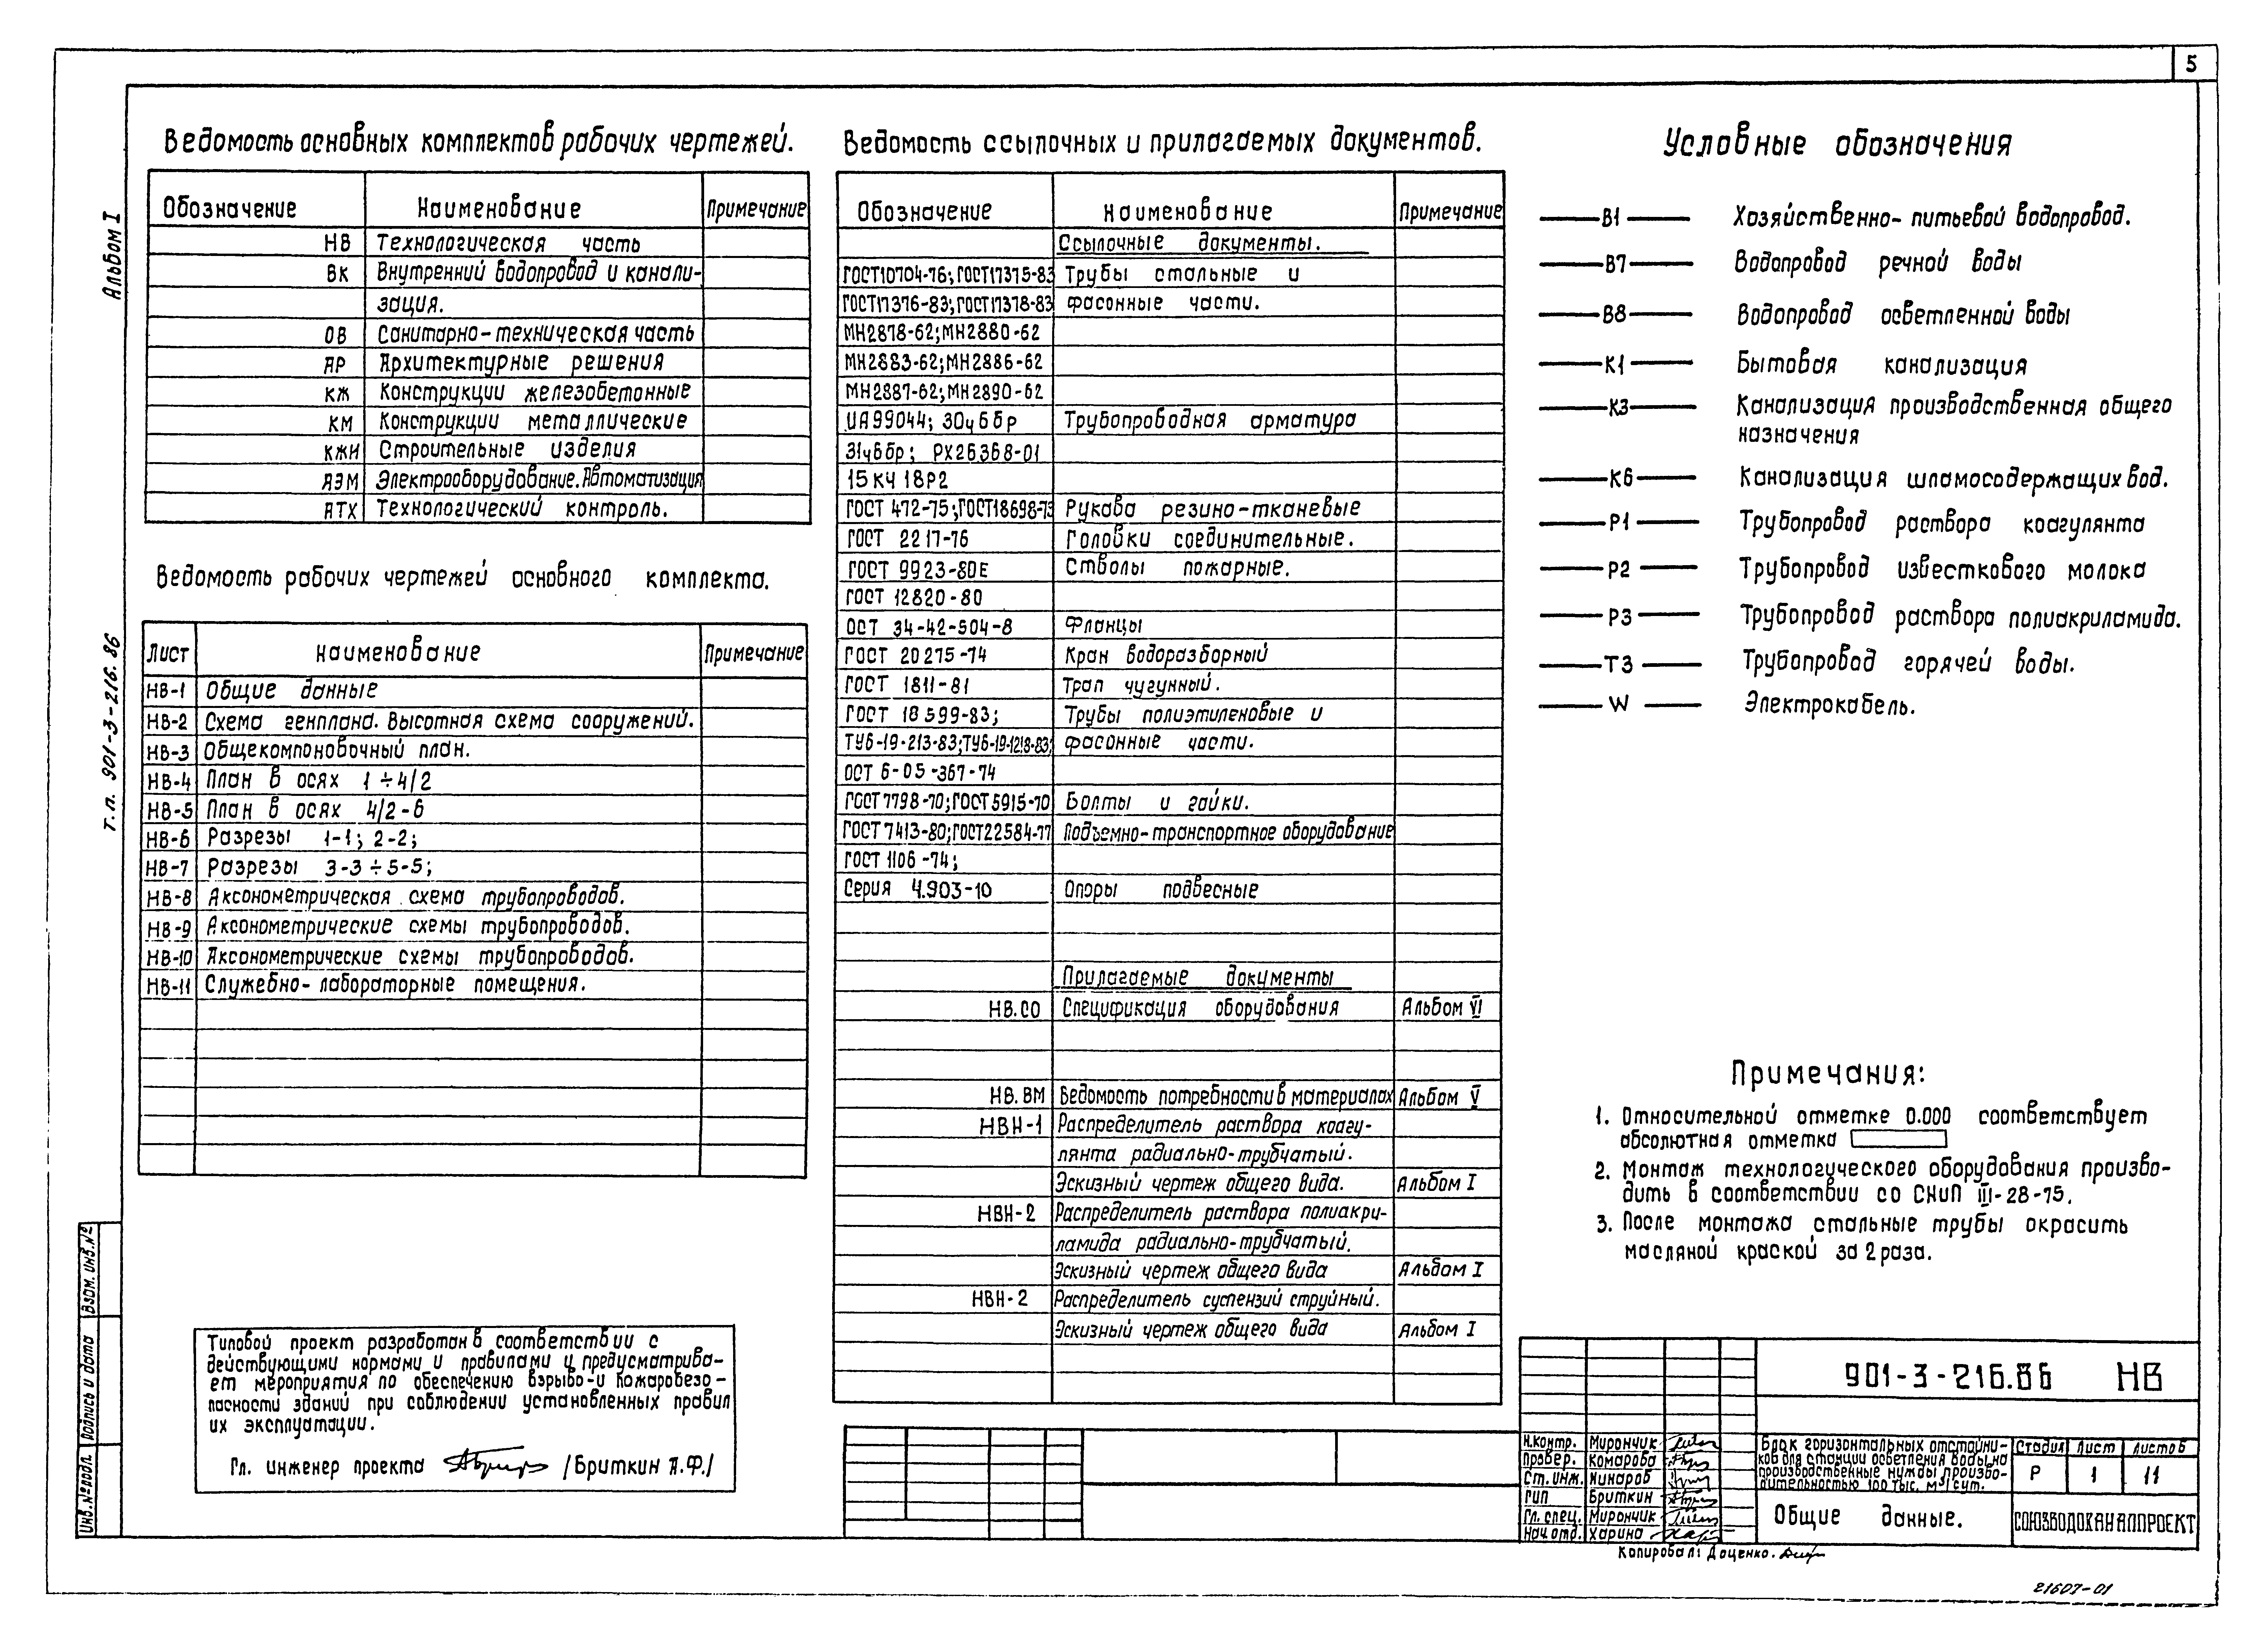 5
Альбом I
т.п. 901-3-216.86
Ведомость основных комплектов рабочих чертежей.
Обозначение Наименование Примечание
НВ Технологическая часть
ВК Внутренний водопровод и канали-
зация.
ОВ Санитарно-техническая часть
АР Архитектурные решения
КЖ Конструкции железобетонные
КМ Конструкции металлические
КЖИ Строительные изделия
АЭМ Электрооборудование. Автоматизация
АТХ Технологический контроль.
Ведомость рабочих чертежей основного комплекта.
Лист Наименование Примечание
НВ-1 Общие данные
НВ-2 Схема генплана. Высотная схема сооружений.
НВ-3 Общекомпоновочный план.
НВ-4 План в осях 1÷4/2
НВ-5 План в осях 4/2-6
НВ-6 Разрезы 1-1; 2-2;
НВ-7 Разрезы 3-3÷5-5;
НВ-8 Аксонометрическая схема трубопроводов.
НВ-9 Аксонометрические схемы трубопроводов.
НВ-10 Аксонометрические схемы трубопроводов.
НВ-11 Служебно-лабораторные помещения.
Типовой проект разработан в соответствии с
действующими нормами и правилами и предусматрива-
ет мероприятия по обеспечению взрыво-и пожаробезо-
пасности зданий при соблюдении установленных правил
их эксплуатации.
Гл. инженер проекта /Бриткин А.Ф./
Взам. инв.№
Подпись и дата
Инв.№подл.
Ведомость ссылочных и прилагаемых документов.
Обозначение Наименование Примечание
Ссылочные документы.
ГОСТ10704-76; ГОСТ17375-83 Трубы стальные и
ГОСТ17376-83; ГОСТ17378-83 фасонные части.
МН2878-62; МН2880-62
МН2883-62; МН2886-62
МН2887-62; МН2890-62
ИА99044; 30ч6бр Трубопроводная арматура
31ч6бр; РХ26368-01
15КЧ18Р2
ГОСТ 472-75; ГОСТ18698-73 Рукава резино-тканевые
ГОСТ 2217-76 Головки соединительные.
ГОСТ 9923-80Е Стволы пожарные.
ГОСТ 12820-80
ОСТ 34-42-504-8 Фланцы
ГОСТ 20275-74 Кран водоразборный
ГОСТ 1811-81 Трап чугунный.
ГОСТ 18599-83; Трубы полиэтиленовые и
ТУ6-19-213-83; ТУ6-19-1218-83; фасонные части.
ОСТ 6-05-367-74
ГОСТ7798-70; ГОСТ5915-70 Болты и гайки.
ГОСТ7413-80; ГОСТ22584-77 Подъемно-транспортное оборудование
ГОСТ 1106-74;
Серия 4.903-10 Опоры подвесные
Прилагаемые документы
НВ.СО Спецификация оборудования Альбом VI
НВ.ВМ Ведомость потребности в материалах Альбом V
НВН-1 Распределитель раствора коагу-
лянта радиально-трубчатый.
Эскизный чертеж общего вида. Альбом I
НВН-2 Распределитель раствора полиакри-
ламида радиально-трубчатый.
Эскизный чертеж общего вида Альбом I
НВН-2 Распределитель суспензий струйный.
Эскизный чертеж общего вида Альбом I
Условные обозначения
В1 Хозяйственно-питьевой водопровод.
В7 Водопровод речной воды
В8 Водопровод осветленной воды
К1 Бытовая канализация
К3 Канализация производственная общего
назначения
К6 Канализация шламосодержащих вод.
Р1 Трубопровод раствора коагулянта
Р2 Трубопровод известкового молока
Р3 Трубопровод раствора полиакриламида.
Т3 Трубопровод горячей воды.
W Электрокабель.
Примечания:
1. Относительной отметке 0.000 соответствует
абсолютная отметка
2. Монтаж технологического оборудования произво-
дить в соответствии со СНиП III-28-75.
3. После монтажа стальные трубы окрасить
масляной краской за 2 раза.
901-3-216.86 НВ
Н.контр. Мирончик
Провер. Комарова
Ст.инж. Минаров
ГИП Бриткин
Гл. спец. Мирончик
Нач.отд. Харина
Блок горизонтальных отстойни-
ков для станции осветления воды на
производственные нужды произво-
дительностью 100 тыс. м³/сут.
Стадия Лист Листов
Р 1 11
Общие данные.
СОЮЗВОДОКАНАЛПРОЕКТ
Копировал: Доценко.
21607-01